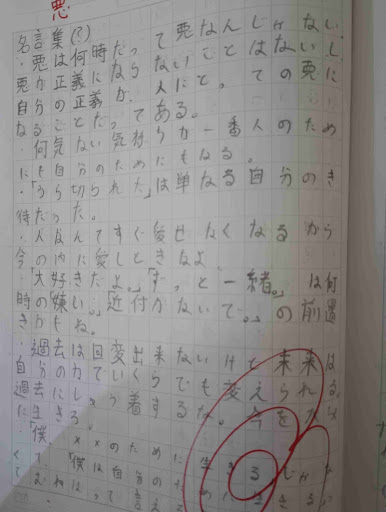 悪
名言集(?)
・悪は何時だって悪なんじゃない。
悪が正義にならないことはないし
自分の正義が、人にとっての悪に
なることだってある。
・何気ない気持ちが一番人のため
にも自分のためにもなる。
・「うら切られた」は単なる自分のき
待だった。
・人なんてすぐ愛せなくなるから
今の内に愛しときなよ
・「大好きだよ。」「ずっと一緒。」は何
時かの「嫌い。」「近付かないで。」の前置
きかもね。
・過去は回変出来ないけど未来は
自分の力でいくらでも変えられる。
過去にしゅう着するな。今を
に生きろ。
・「僕 ××のために生きる
くて「僕は自分の
むねはって言え